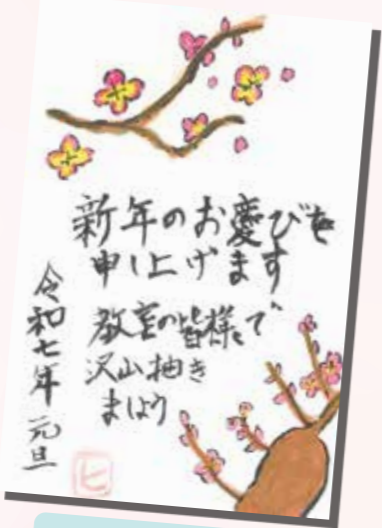 新年のお慶びを
申し上げます
教室の皆様で
沢山描き
ましょう
令和七年 元旦
ヒ